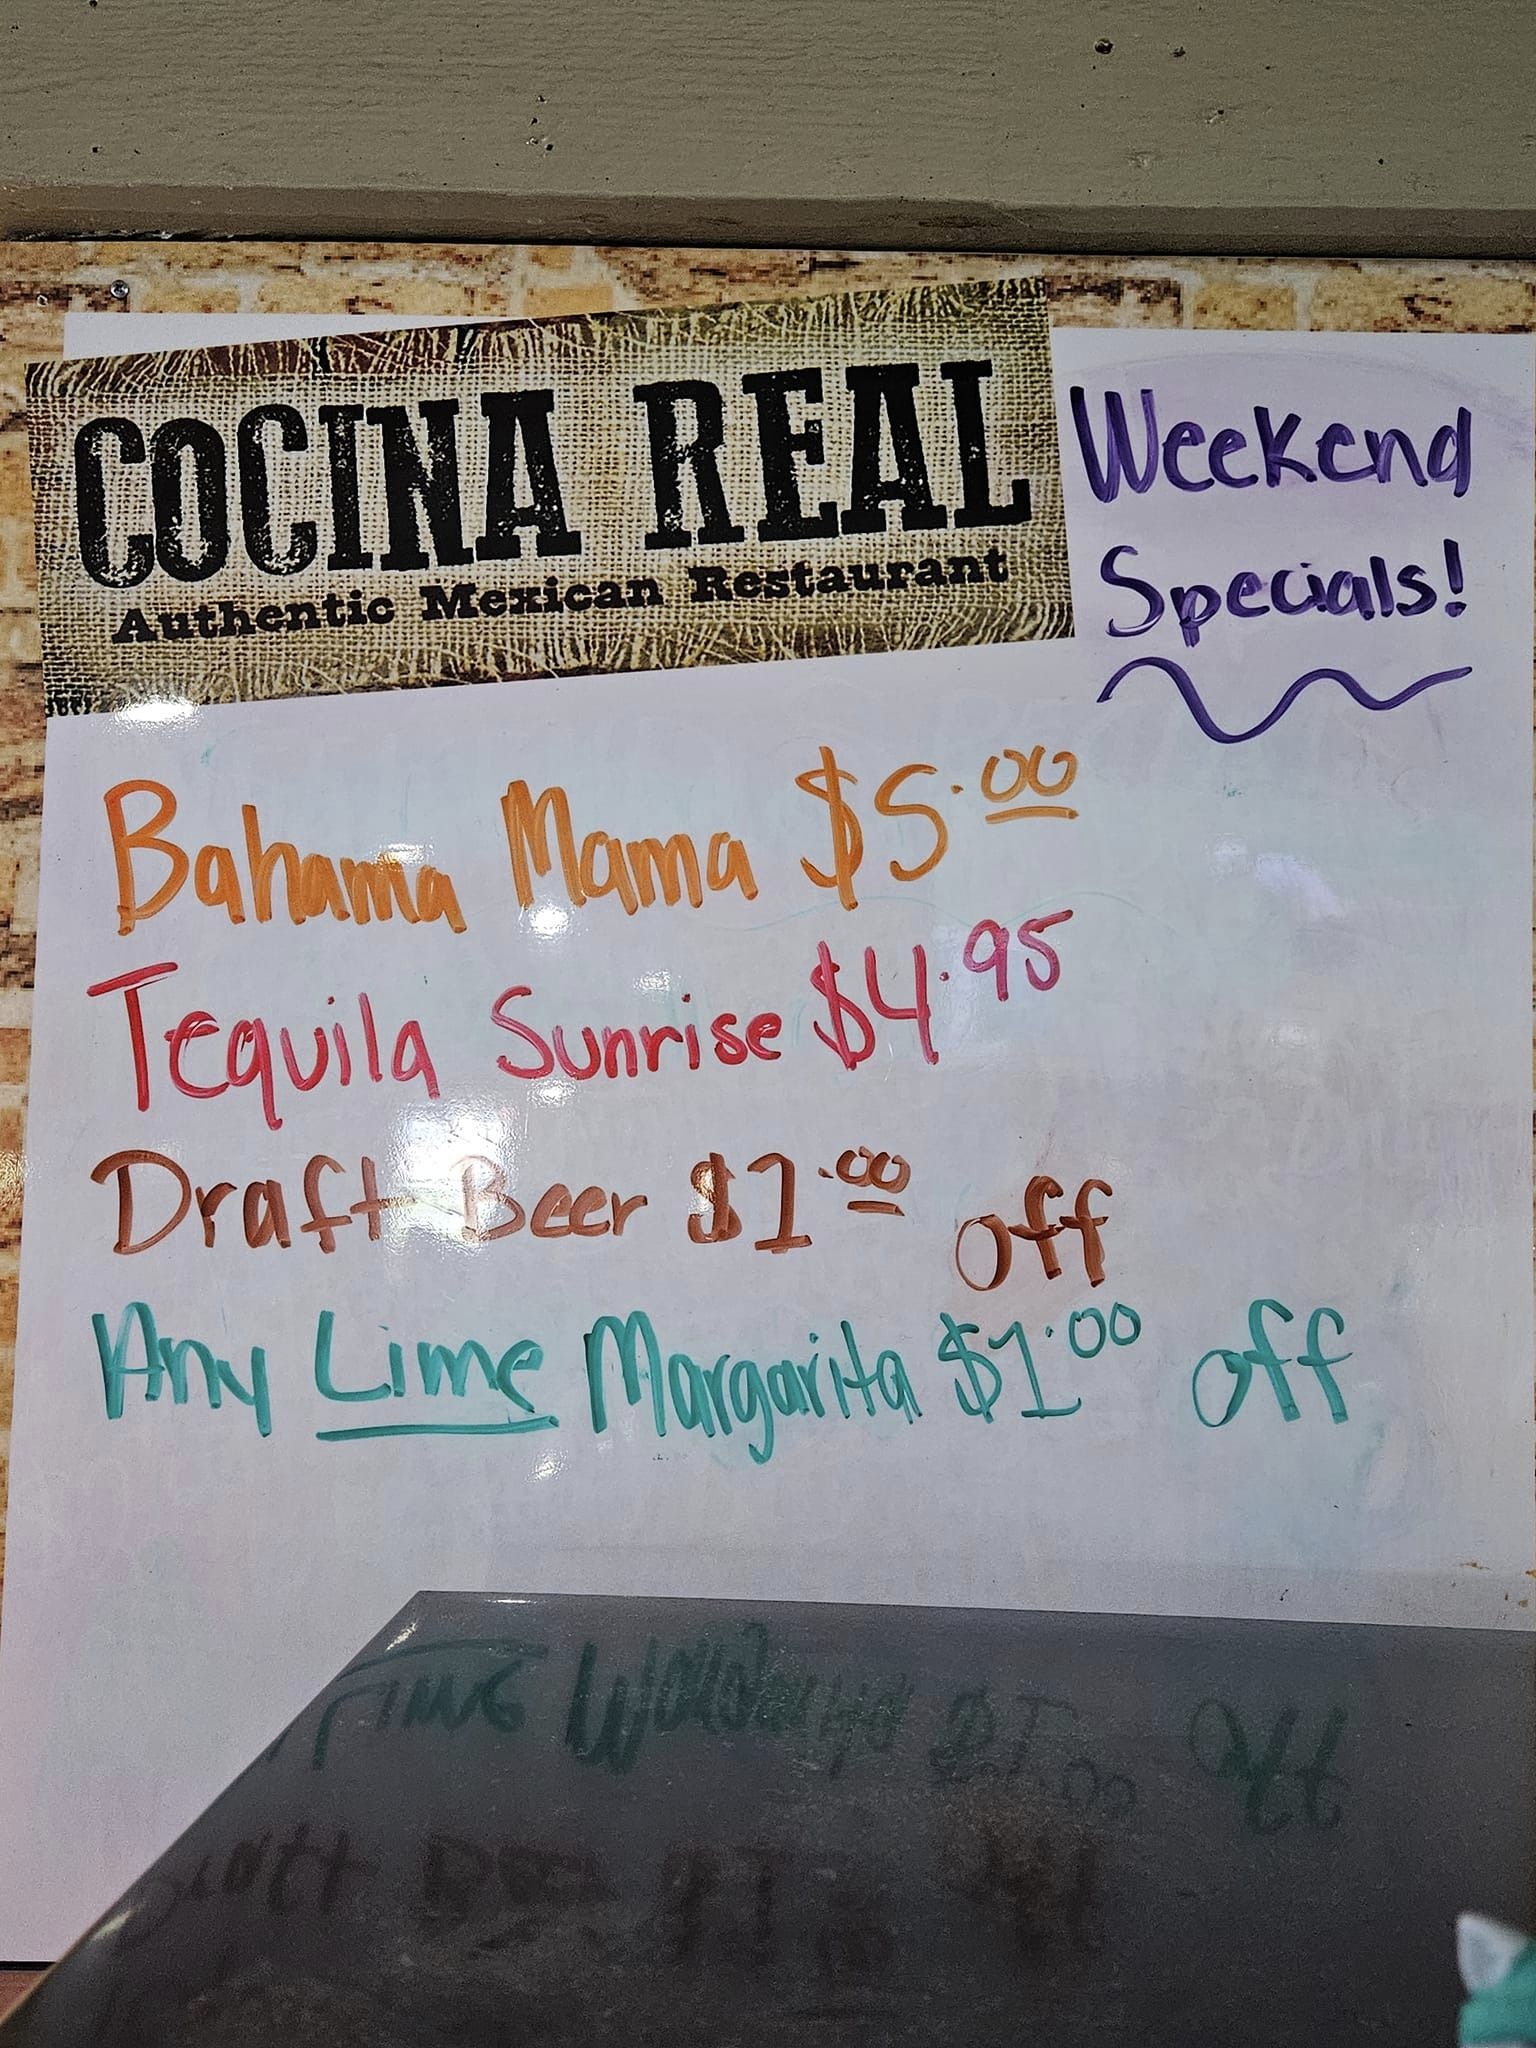 COCINA REAL
Authentic Mexican Restaurant
Weekend
Specials!
Bahama Mama $5.00
Tequila Sunrise $4.95
Draft Beer $1.00 off
Any Lime Margarita $1.00 off